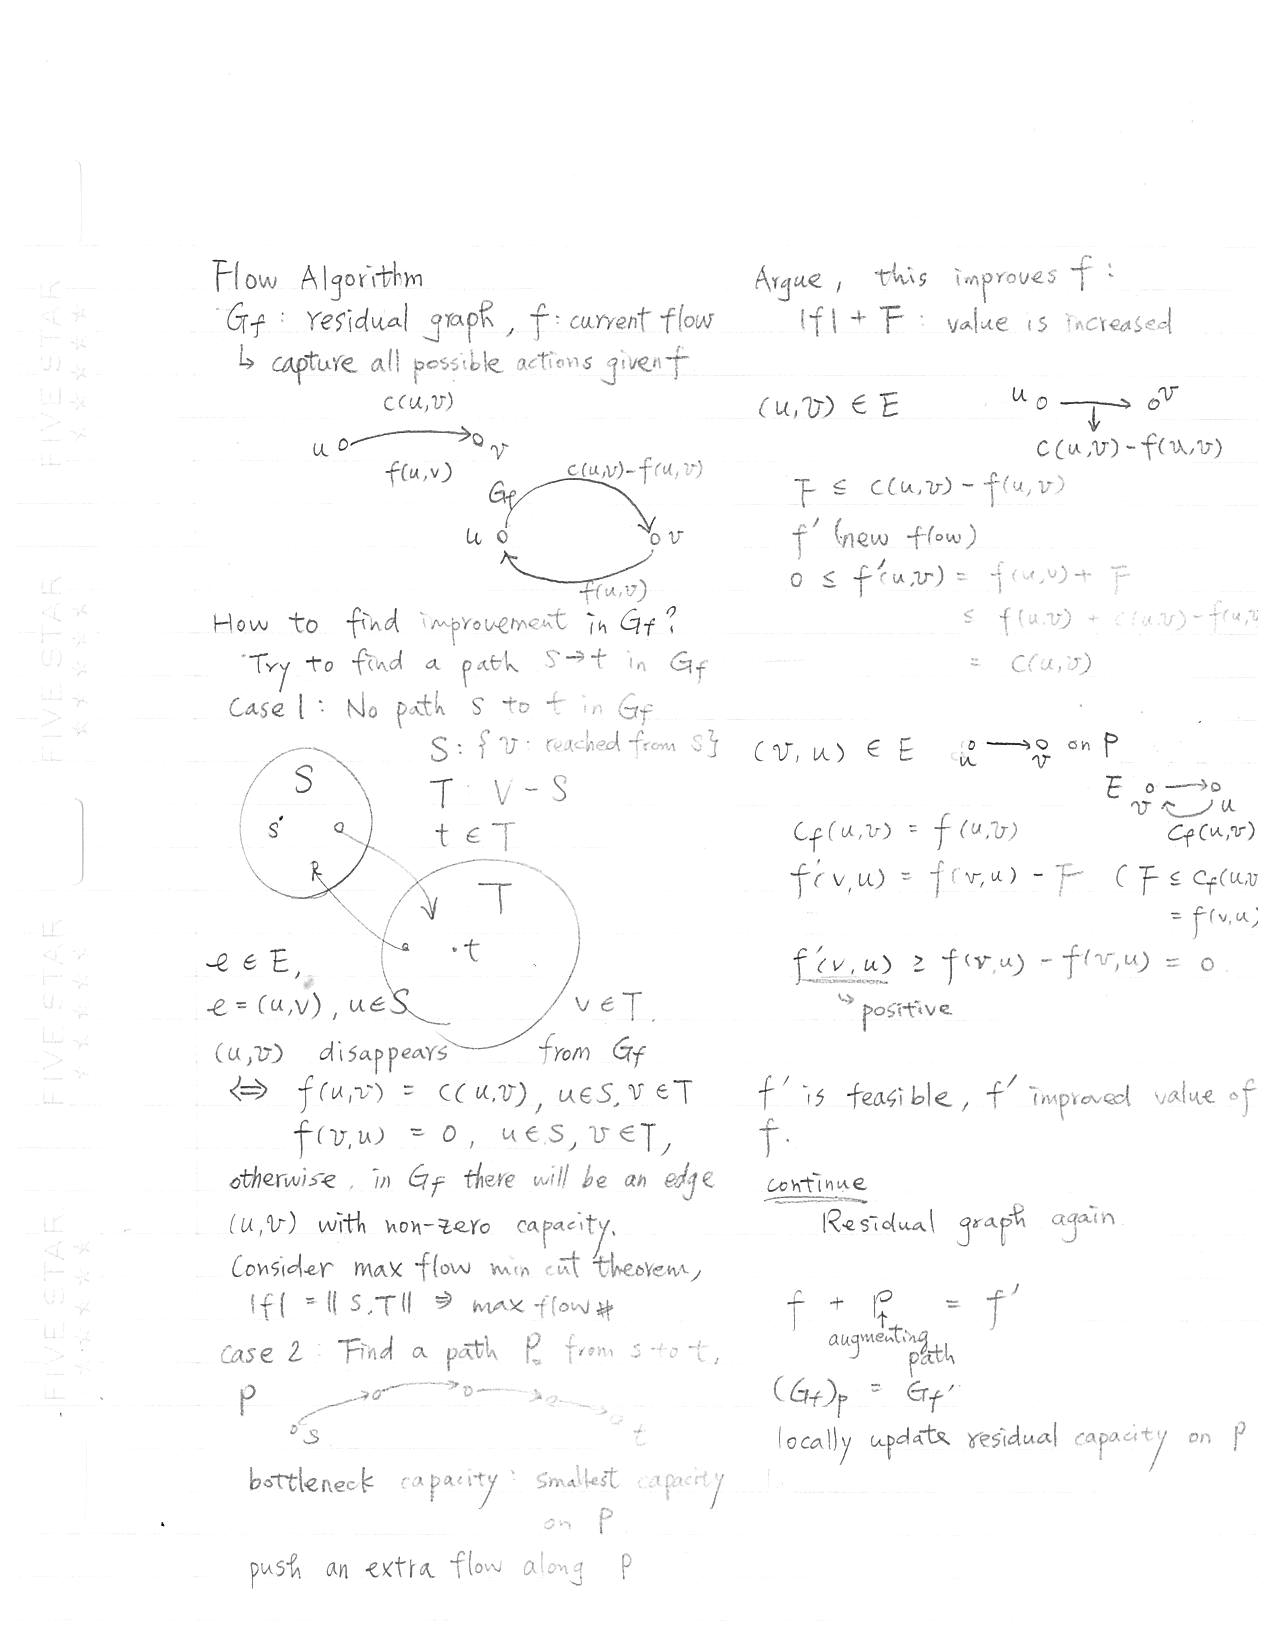 Flow Algorithm
Gf : residual graph, f : current flow
↳ capture all possible actions given f
c(u,v)
u v
f(u,v)
c(u,v)-f(u,v)
Gf
u v
f(u,v)
How to find improvement in Gf?
Try to find a path s→t in Gf
Case 1: No path s to t in Gf
S: { v: reached from s}
T: V - S
t ∈ T
S
s
T
t
e ∈ E,
e = (u,v), u∈S v ∈ T.
(u,v) disappears from Gf
⇔ f(u,v) = c(u,v), u∈S, v ∈ T
f(v,u) = 0, u∈S, v∈T,
otherwise, in Gf there will be an edge
(u,v) with non-zero capacity.
Consider max flow min cut theorem,
|f| = ||S,T|| ⇒ max flow #
case 2: Find a path P from s to t,
P
s t
bottleneck capacity: smallest capacity
on P
push an extra flow along P
Argue, this improves f:
|f| + F : value is increased
(u,v) ∈ E u v
c(u,v)-f(u,v)
F ≤ c(u,v) - f(u,v)
f' (new flow)
0 ≤ f'(u,v) = f(u,v) + F
≤ f(u,v) + c(u,v) - f(u,v
= c(u,v)
(v,u) ∈ E u v on P
E v u
Cf(u,v) = f(u,v) Cf(u,v)
f'(v,u) = f(v,u) - F ( F ≤ Cf(u,v
= f(v,u)
f'(v,u) ≥ f(v,u) - f(v,u) = 0
↳ positive
f' is feasible, f' improved value of
f.
continue
Residual graph again
f + P = f'
augmenting
path
(Gf)p = Gf'
locally update residual capacity on P
FIVE STAR
FIVE STAR
FIVE STAR
FIVE STAR